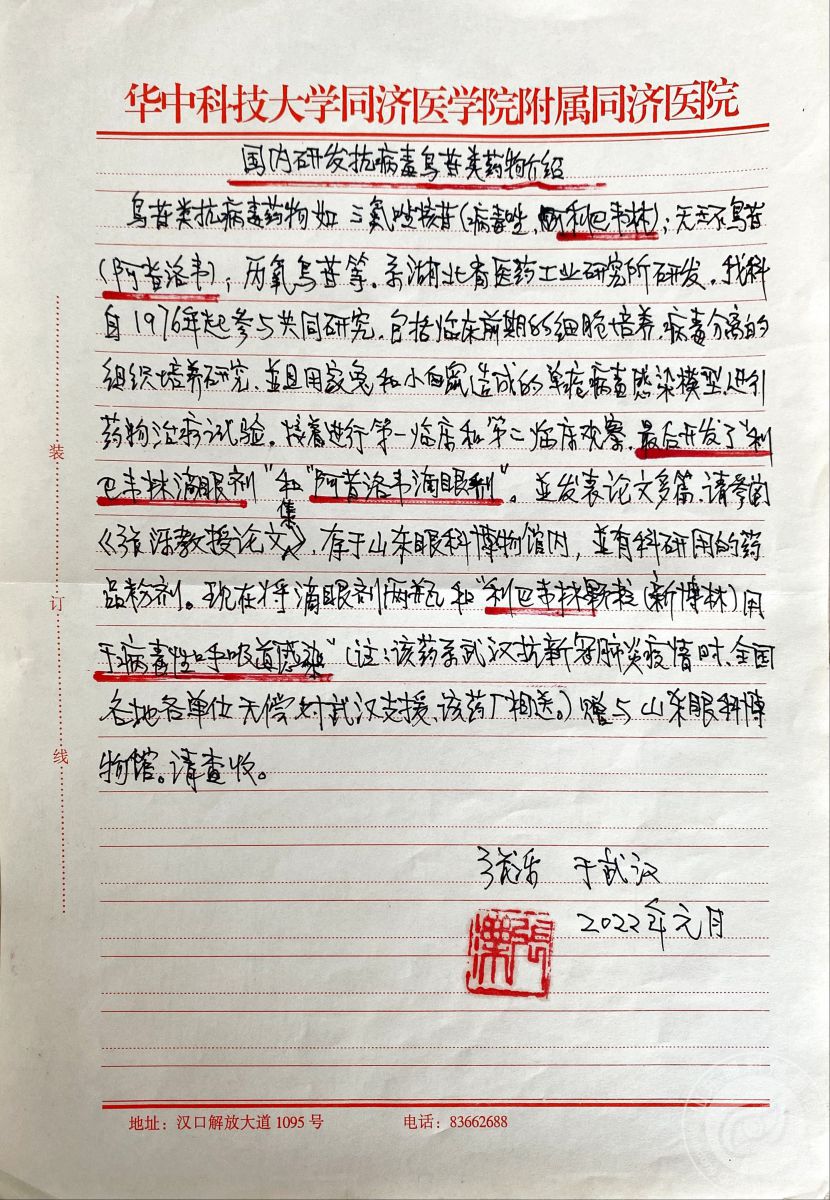 华中科技大学同济医学院附属同济医院
国内研发抗病毒鸟苷类药物介绍
鸟苷类抗病毒药物如三氮唑核苷(病毒唑、利巴韦林);无环鸟苷
(阿昔洛韦);丙氧鸟苷等。系湖北省医药工业研究所研发。我科
自1976年起参与共同研究。包括临床前期的细胞培养、病毒分离的
组织培养研究、並且用家兔和小白鼠造成的单疱病毒感染模型,进行
药物治疗试验。接着进行第一临床和第二临床观察。最后开发了“利
巴韦林滴眼剂”和“阿昔洛韦滴眼剂”。並发表论文多篇,请参阅
《张溧教授论文集》,存于山东眼科博物馆内,並有科研用的药
品粉剂。现在将滴眼剂两瓶和“利巴韦林颗粒(新博林)用
于病毒性呼吸道感染”(注:该药系武汉抗新冠肺炎疫情时、全国
各地各单位无偿对武汉支援、该药厂相送。)赠与山东眼科博
物馆。请查收。
张溧 于武汉
2022年元月
張溧
装
订
线
地址:汉口解放大道1095号 电话:83662688